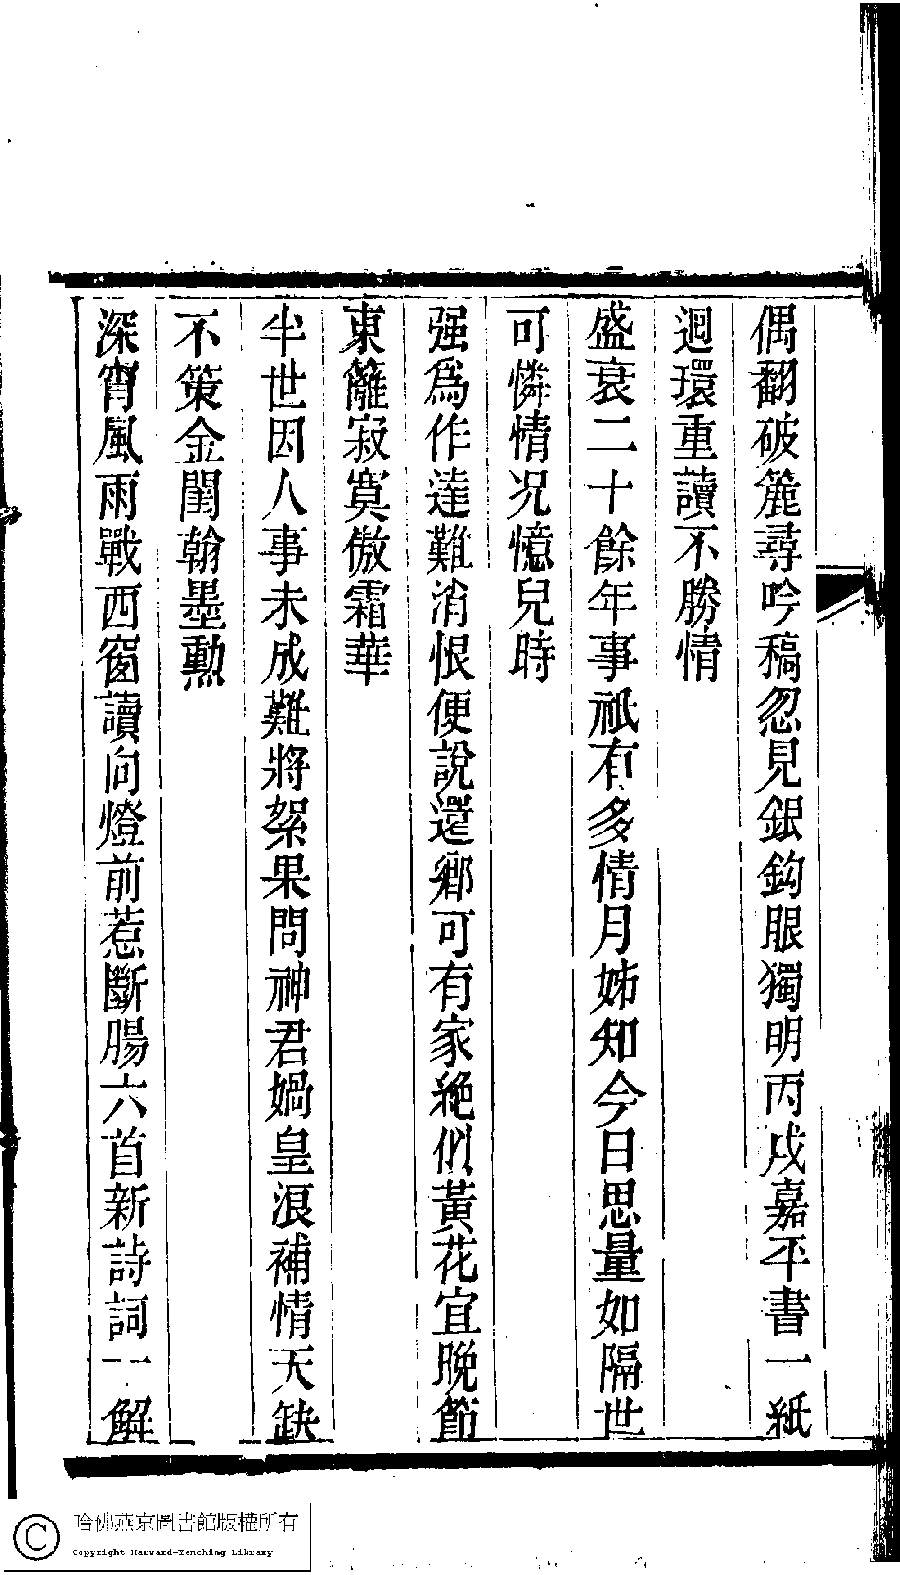 偶翻破簏尋吟稿忽見銀鈎眼獨明丙戌嘉平書一紙
迴環重讀不勝情
盛衰二十餘年事祇有多情月姊知今日思量如隔世
可憐情况憶兒時
强為作達難消恨便說還鄉可有家絶似黃花宜晚節
東籬寂寞傲霜華
半世因人事未成難將絮果問神君媧皇浪補情天缺
不策金閨翰墨勳
深宵風雨戰西窗讀向燈前惹斷腸六首新詩詞一解
哈佛燕京圖書館版權所有
Copyright Harvard-Yenching Library